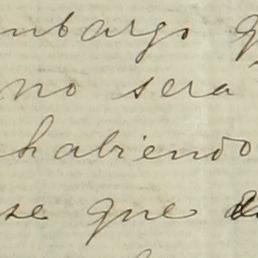 mbargo q
no sera
habiendo
se que